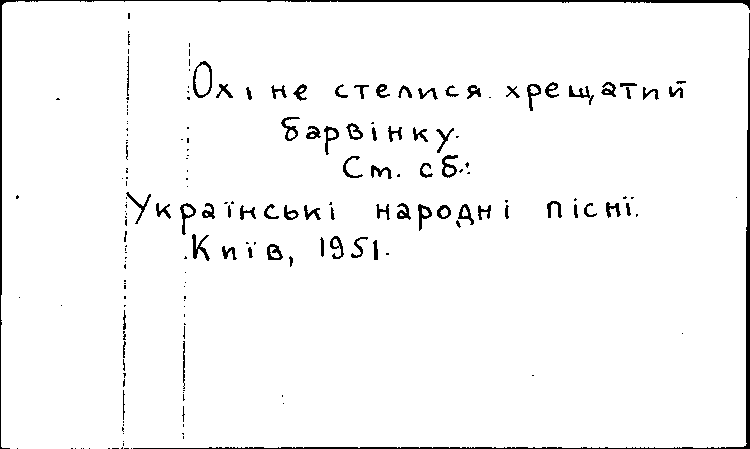 Ох і не стелися хрещатий
барвінку.
Ст. сб.:
Українські народні пісні.
Київ, 1951.